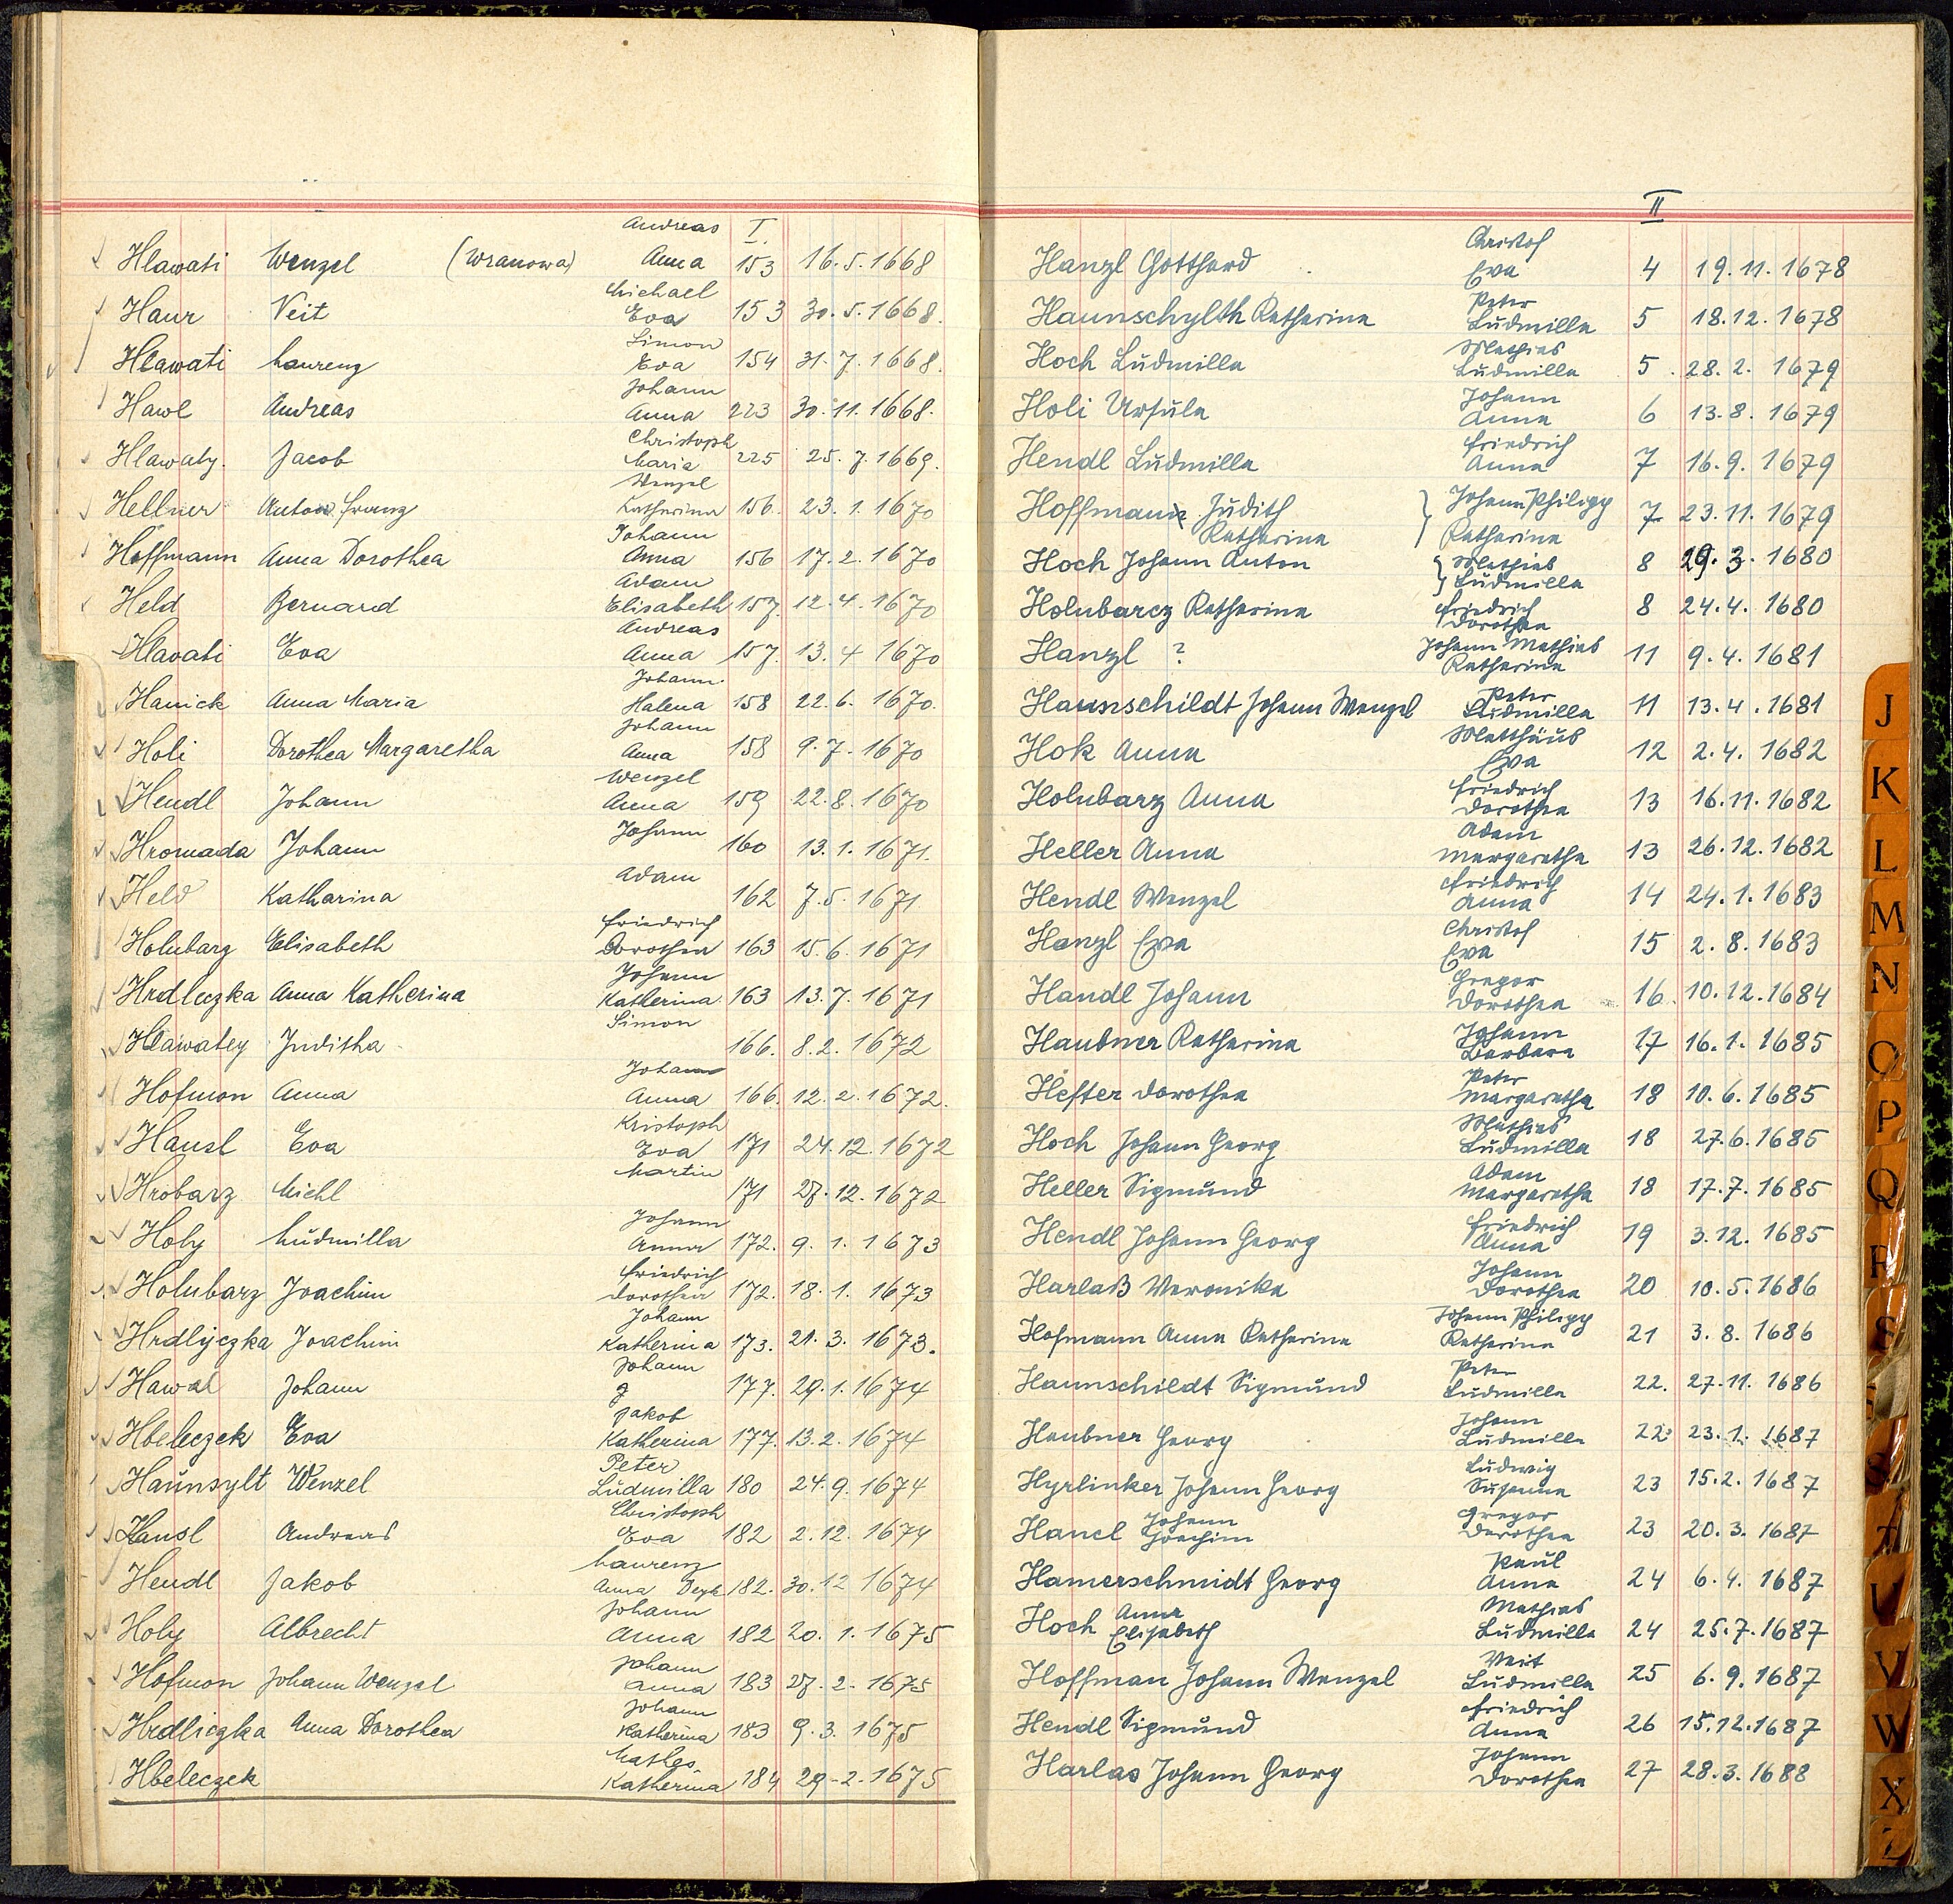 Andreas I.
Hlawati Wenzel (Wranowa) Anna 153 16.5.1668
Michael
Haur Veit Eva 153 30.5.1668.
Simon
Hlawati Laurenz Eva 154 31.7.1668.
Johann
Hawl Andreas Anna 223 30.11.1668.
Christoph
Hlawaty. Jacob Maria 225 25.7.1669.
Wenzel
Hellner Anton Franz Katharina 156. 23.1.1670
Johann
Hoffmann Anna Dorothea Anna 156 17.2.1670
Adam
Held Bernard Elisabeth 157. 12.4.1670
Andreas
Hlavati Eva Anna 157. 13.4 1670
Johann.
Hanick Anna Maria Halena 158 22.6.1670.
Johann
Holi Dorothea Margaretha Anna 158 9.7.1670
Wenzel
Hendl Johann Anna 159 22.8.1670
Johann
Hromada Johann 160 13.1.1671.
Adam
Held Katharina 162 7.5.1671
Friedrich
Holubarz Elisabeth Dorothea 163 15.6.1671
Johann
Hrdleczka Anna Katherina Katherina 163 13.7.1671
Simon
Hlawatey Juditha 166. 8.2.1672
Johann
Hofmon Anna Anna 166. 12.2.1672.
Kristoph
Hansl Eva Eva 171 24.12.1672
Martin
Hrobarz Michl 171 27.12.1672
Johann
Holy Ludmilla Anna 172. 9.1.1673
Friedrich
Holubarz Joachim Dorothea 172. 18.1.1673
Johann
Hrdlyczka Joachim Katherina 173. 21.3.1673.
Johann
Hawal Johann ? 177. 29.1.1674
Jakob
Hbeleczek Eva Katherina 177. 13.2.1674
Peter
Haunsylt Wenzel Ludmilla 180 24.9.1674
Christoph
Hansl Andreas Eva 182 2.12.1674
Laurenz
Hendl Jakob Anna 182. 30.12 1674
Johann
Holy Albrecht Anna 182 20.1.1675
Johann
Hofmon Johann Wenzel Anna 183 27.2.1675
Johann
Hrdliczka Anna Dorothea Katherina 183 9.3.1675
Mathes
Hbeleczek Katherina 184 29-2.1675
II
Christof
Hanzl Gotthard Eva 4 19.11.1678
Peter
Haunschylth Katharina Ludmilla 5 18.12.1678
Mathias
Hoch Ludmilla Ludmilla 5. 28.2.1679
Johann
Holi Ursula Anna 6 13.8.1679
Friedrich
Hendl Ludmilla Anna 7 16.9.1679
Johann Philipp
Hoffmann Judith 7. 23.11.1679
Katharina Katharina
Hoch Johann Anton Mathias 8 29.3.1680
Ludmilla
Holubarcz Katharina Friedrich 8 24.4.1680
Dorothea
Johann Mathias
Hanzl ? Katharina 11 9.4.1681
Peter
Haunschildt Johann Wenzel Ludmilla 11 13.4.1681
Matthäus
Hok Anna Eva 12 2.4.1682
Friedrich
Holubarz Anna Dorothea 13 16.11.1682
Adam
Heller Anna Margaretha 13 26.12.1682
Friedrich
Hendl Wenzel Anna 14 24.1.1683
Christof
Hanzl Eva Eva 15 2.8.1683
Gregor
Handl Johann Dorothea 16. 10.12.1684
Johann
Haubner Katharina Barbara 17 16.1.1685
Peter
Hefter Dorothea Margaretha 18 10.6.1685
Mathias
Hoch Johann Georg Ludmilla 18 27.6.1685
Adam
Heller Sigmund Margaretha 18 17.7.1685
Friedrich
Hendl Johann Georg Anna 19 3.12.1685
Johann
Harlaß Veronika Dorothea 20 10.5.1686
Johann Philipp
Hofmann Anna Katharina Katharina 21 3.8.1686
Peter
Haunschildt Sigmund Ludmilla 22. 27.11.1686
Johann
Haubner Georg Ludmilla 22 23.1.1687
Ludwig
Hyrlinker Johann Georg Susanna 23 15.2.1687
Johann Gregor
Hancl Joachim Dorothea 23 20.3.1687
Paul
Hamerschmidt Georg Anna 24 6.4.1687
Anna Mathias
Hoch Elisabeth Ludmilla 24 25.7.1687
Veit
Hoffman Johann Wenzel Ludmilla 25 6.9.1687
Friedrich
Hendl Sigmund Anna 26 15.12.1687
Johann
Harlas Johann Georg Dorothea 27 28.3.1688
J
K
L
M
N
O
P
Q
R
S
U
V
W
X
Z